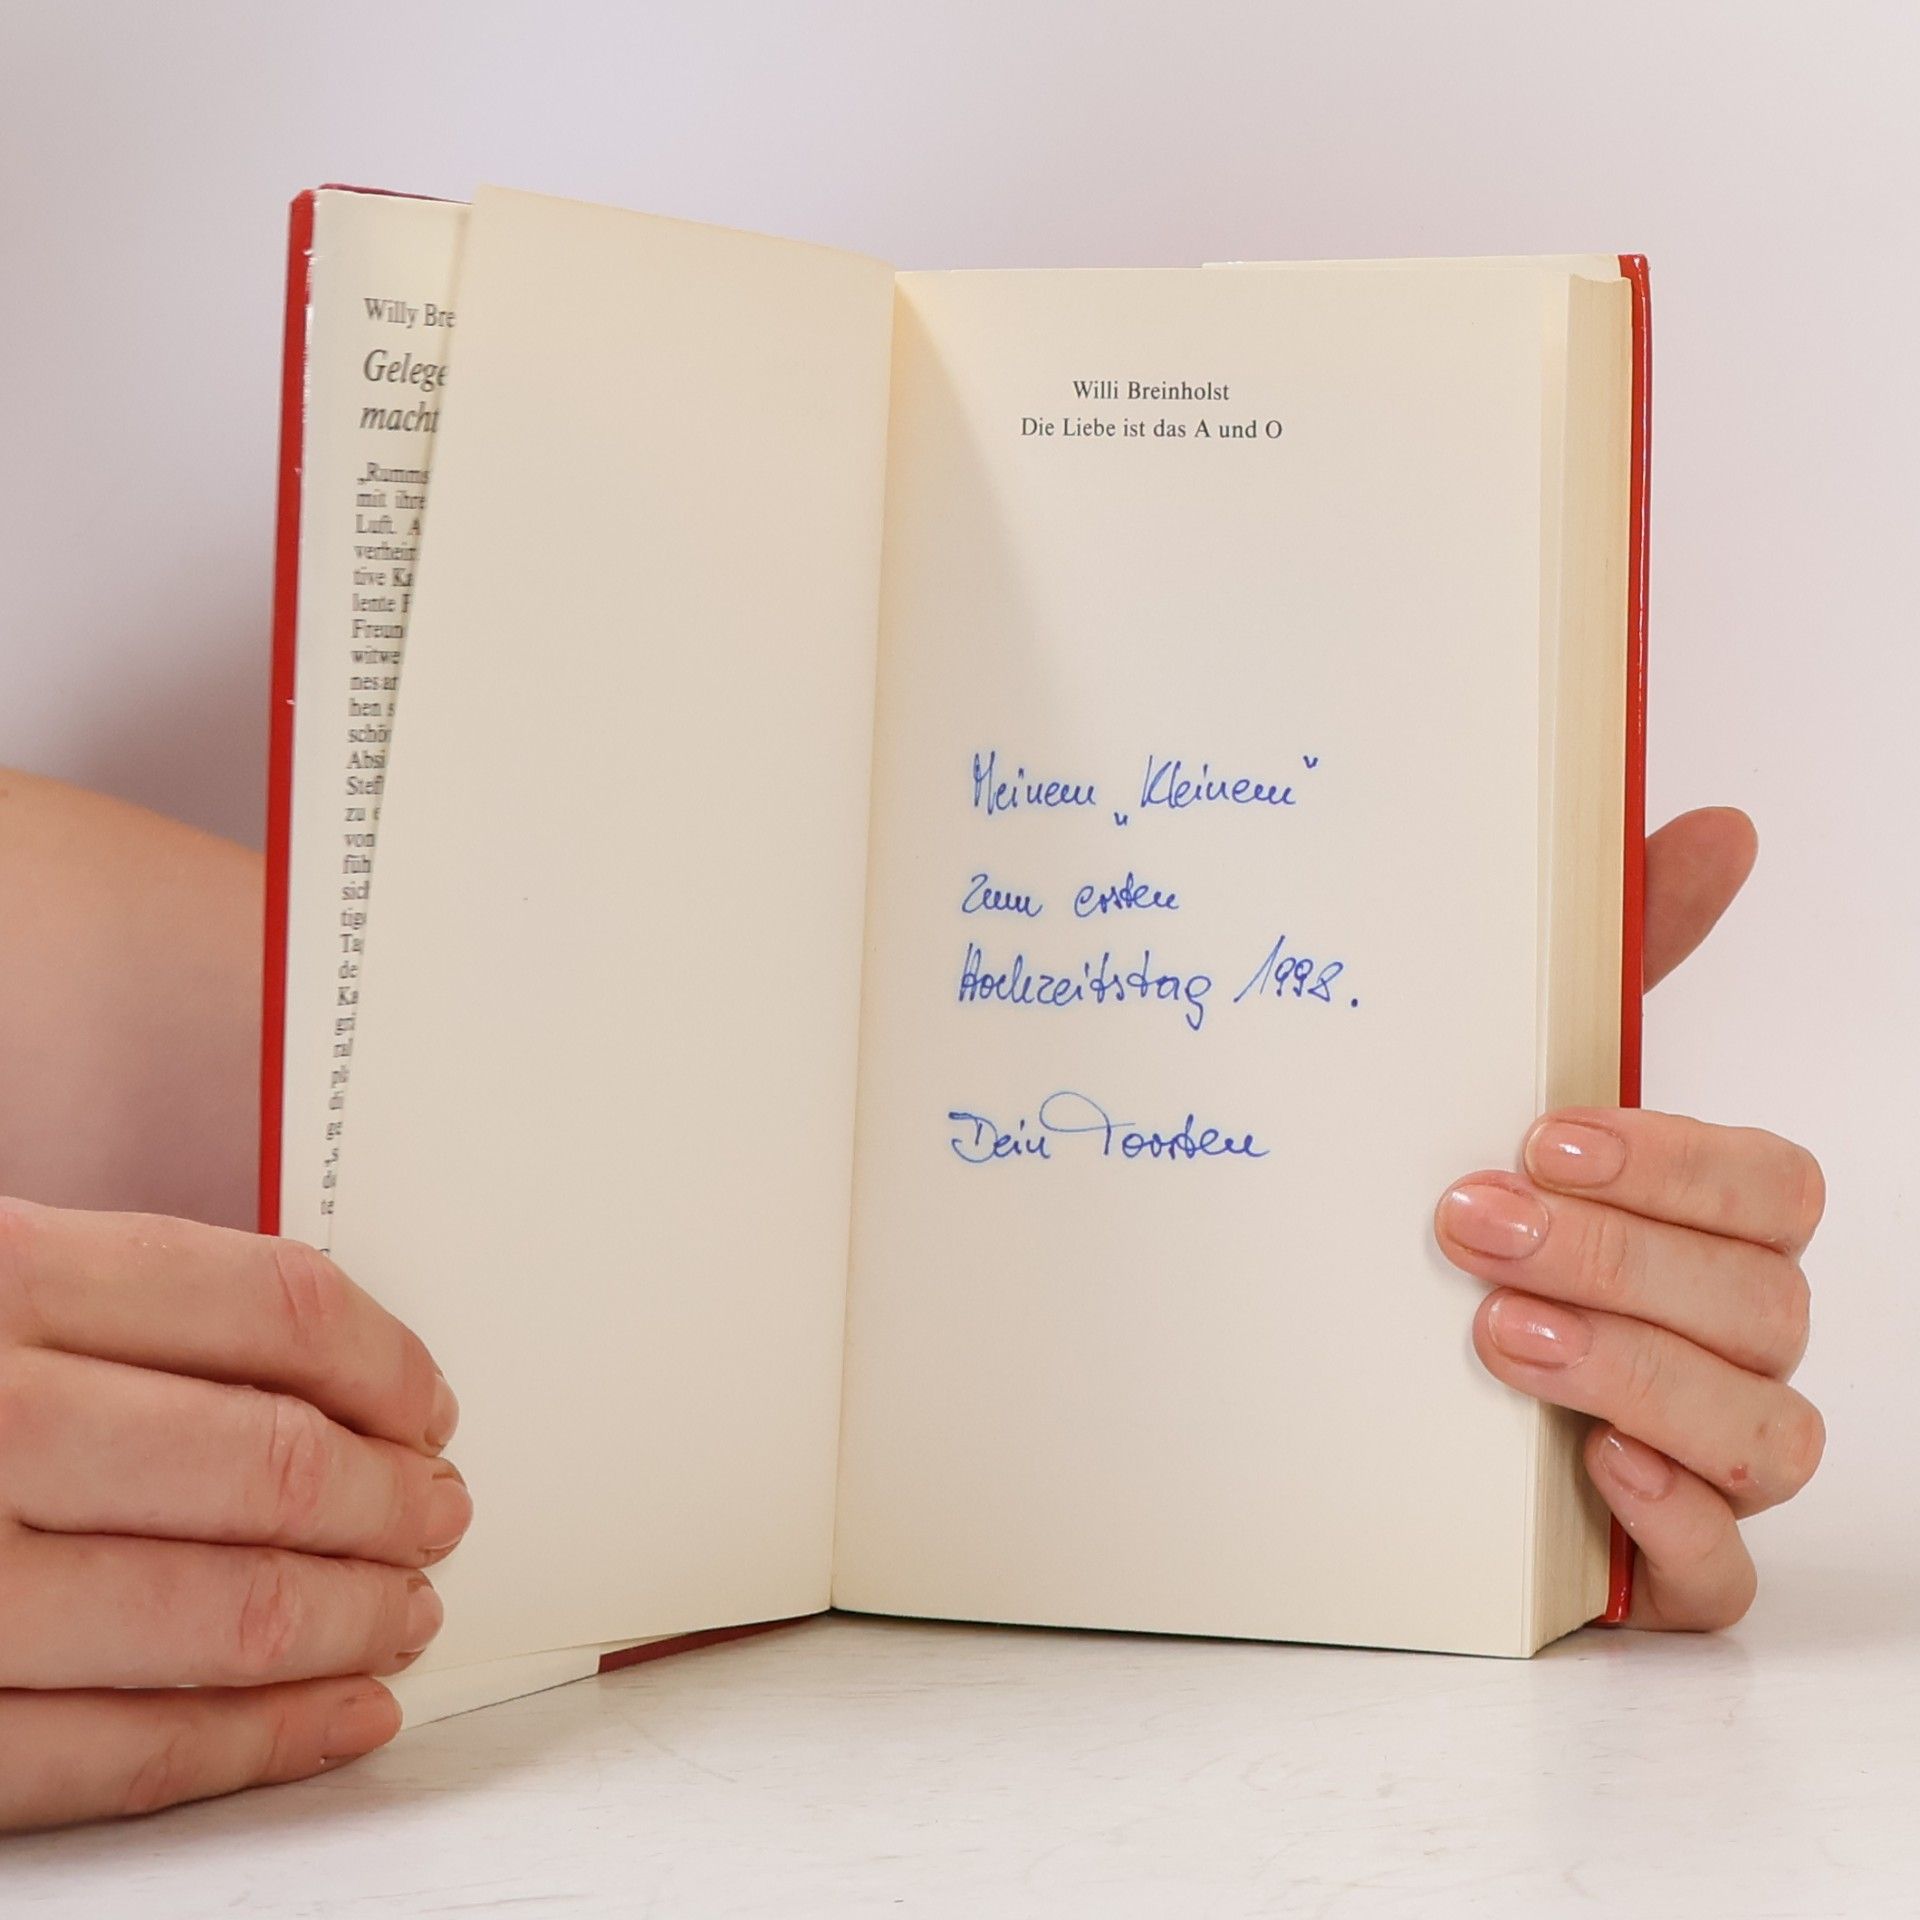 Willy Bre
Gelege
macht
„Rumms
mit ihre
Luft. A
verheir
tive Ka
lente F
Freun
witwe
nesar
ben s
schö
Absi
Stef
zu e
von
füh
sich
tig
Ta
de
Ka
Willi Breinholst
Die Liebe ist das A und O
Meinem „Kleinem“
zum ersten
Hochzeitstag 1998.
Dein Torsten